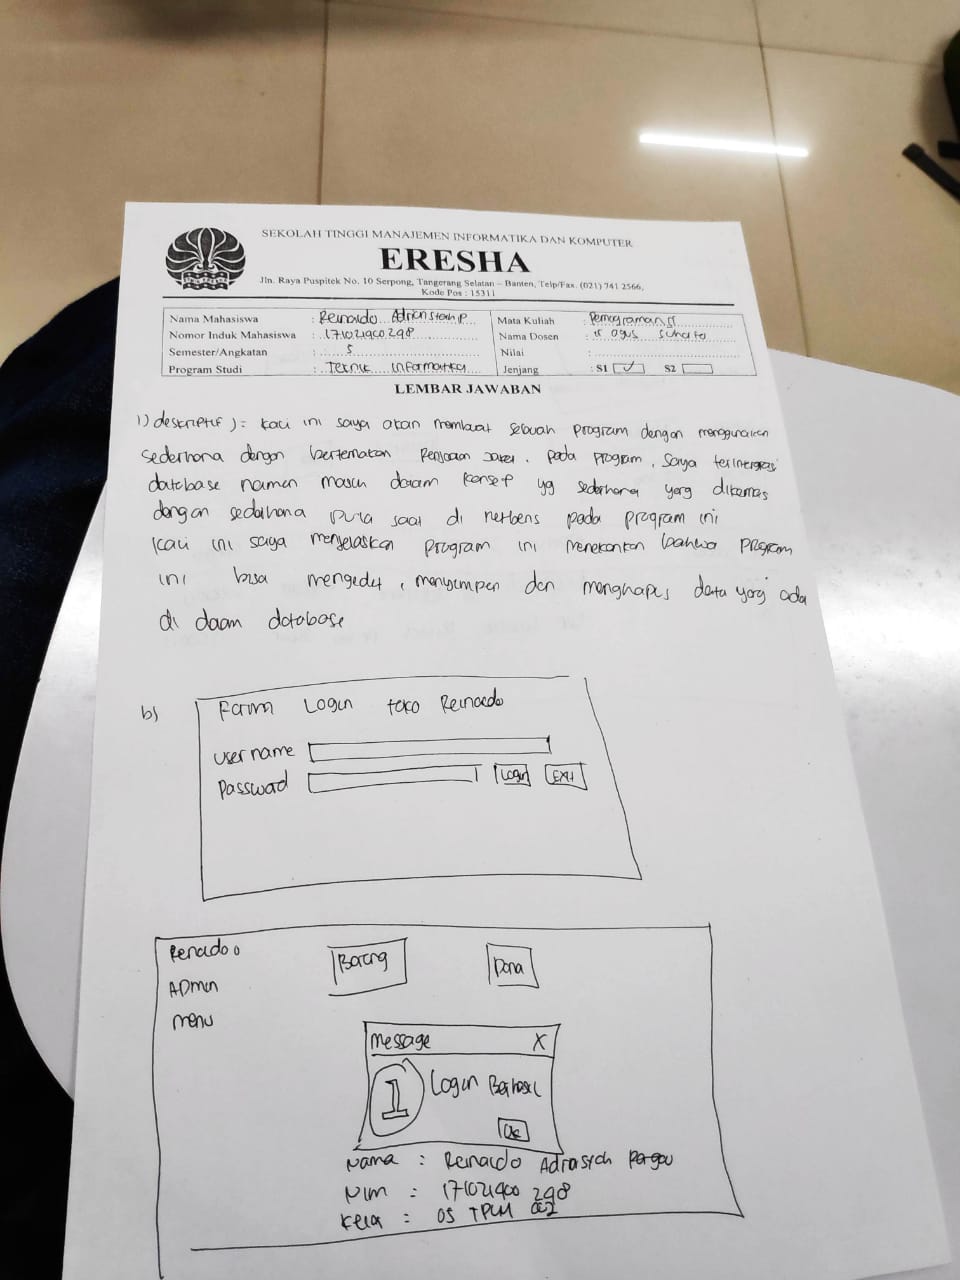 SEKOLAH TINGGI MANAJEMEN INFORMATIKA DAN KOMPUTER
ERESHA
Jln. Raya Puspitek No. 10 Serpong, Tangerang Selatan – Banten, Telp/Fax. (021) 741 2566,
Kode Pos : 15311
Nama Mahasiswa : Reinaldo
Nomor Induk Mahasiswa : 171021400298
Semester/Angkatan : 5
Program Studi : Teknik Informatika
Mata Kuliah :
Nama Dosen : Ir Agus
Nilai :
Jenjang : S1 ✓ S2
LEMBAR JAWABAN
1) deskriptif ) = kali ini saya akan membuat sebuah program dengan menggunakan
sederhana dengan bertemakan program, saya
database namun masuk dalam konsep yg sederhana yang dikemas
dengan sederhana pula saat di netbens pada program ini
kali ini saya menjelaskan program ini menekankan bahwa program
ini bisa mengedit, menyimpan dan menghapus data yang ada
di dalam database
b)
Form Login toko Reinaldo
username
Password Login Exit
Barang
ADmin
menu
message X
1 Login Berhasil
Ok
Nama : Reinaldo
NIM : 171021400 298
Kelas : 05 TPLM